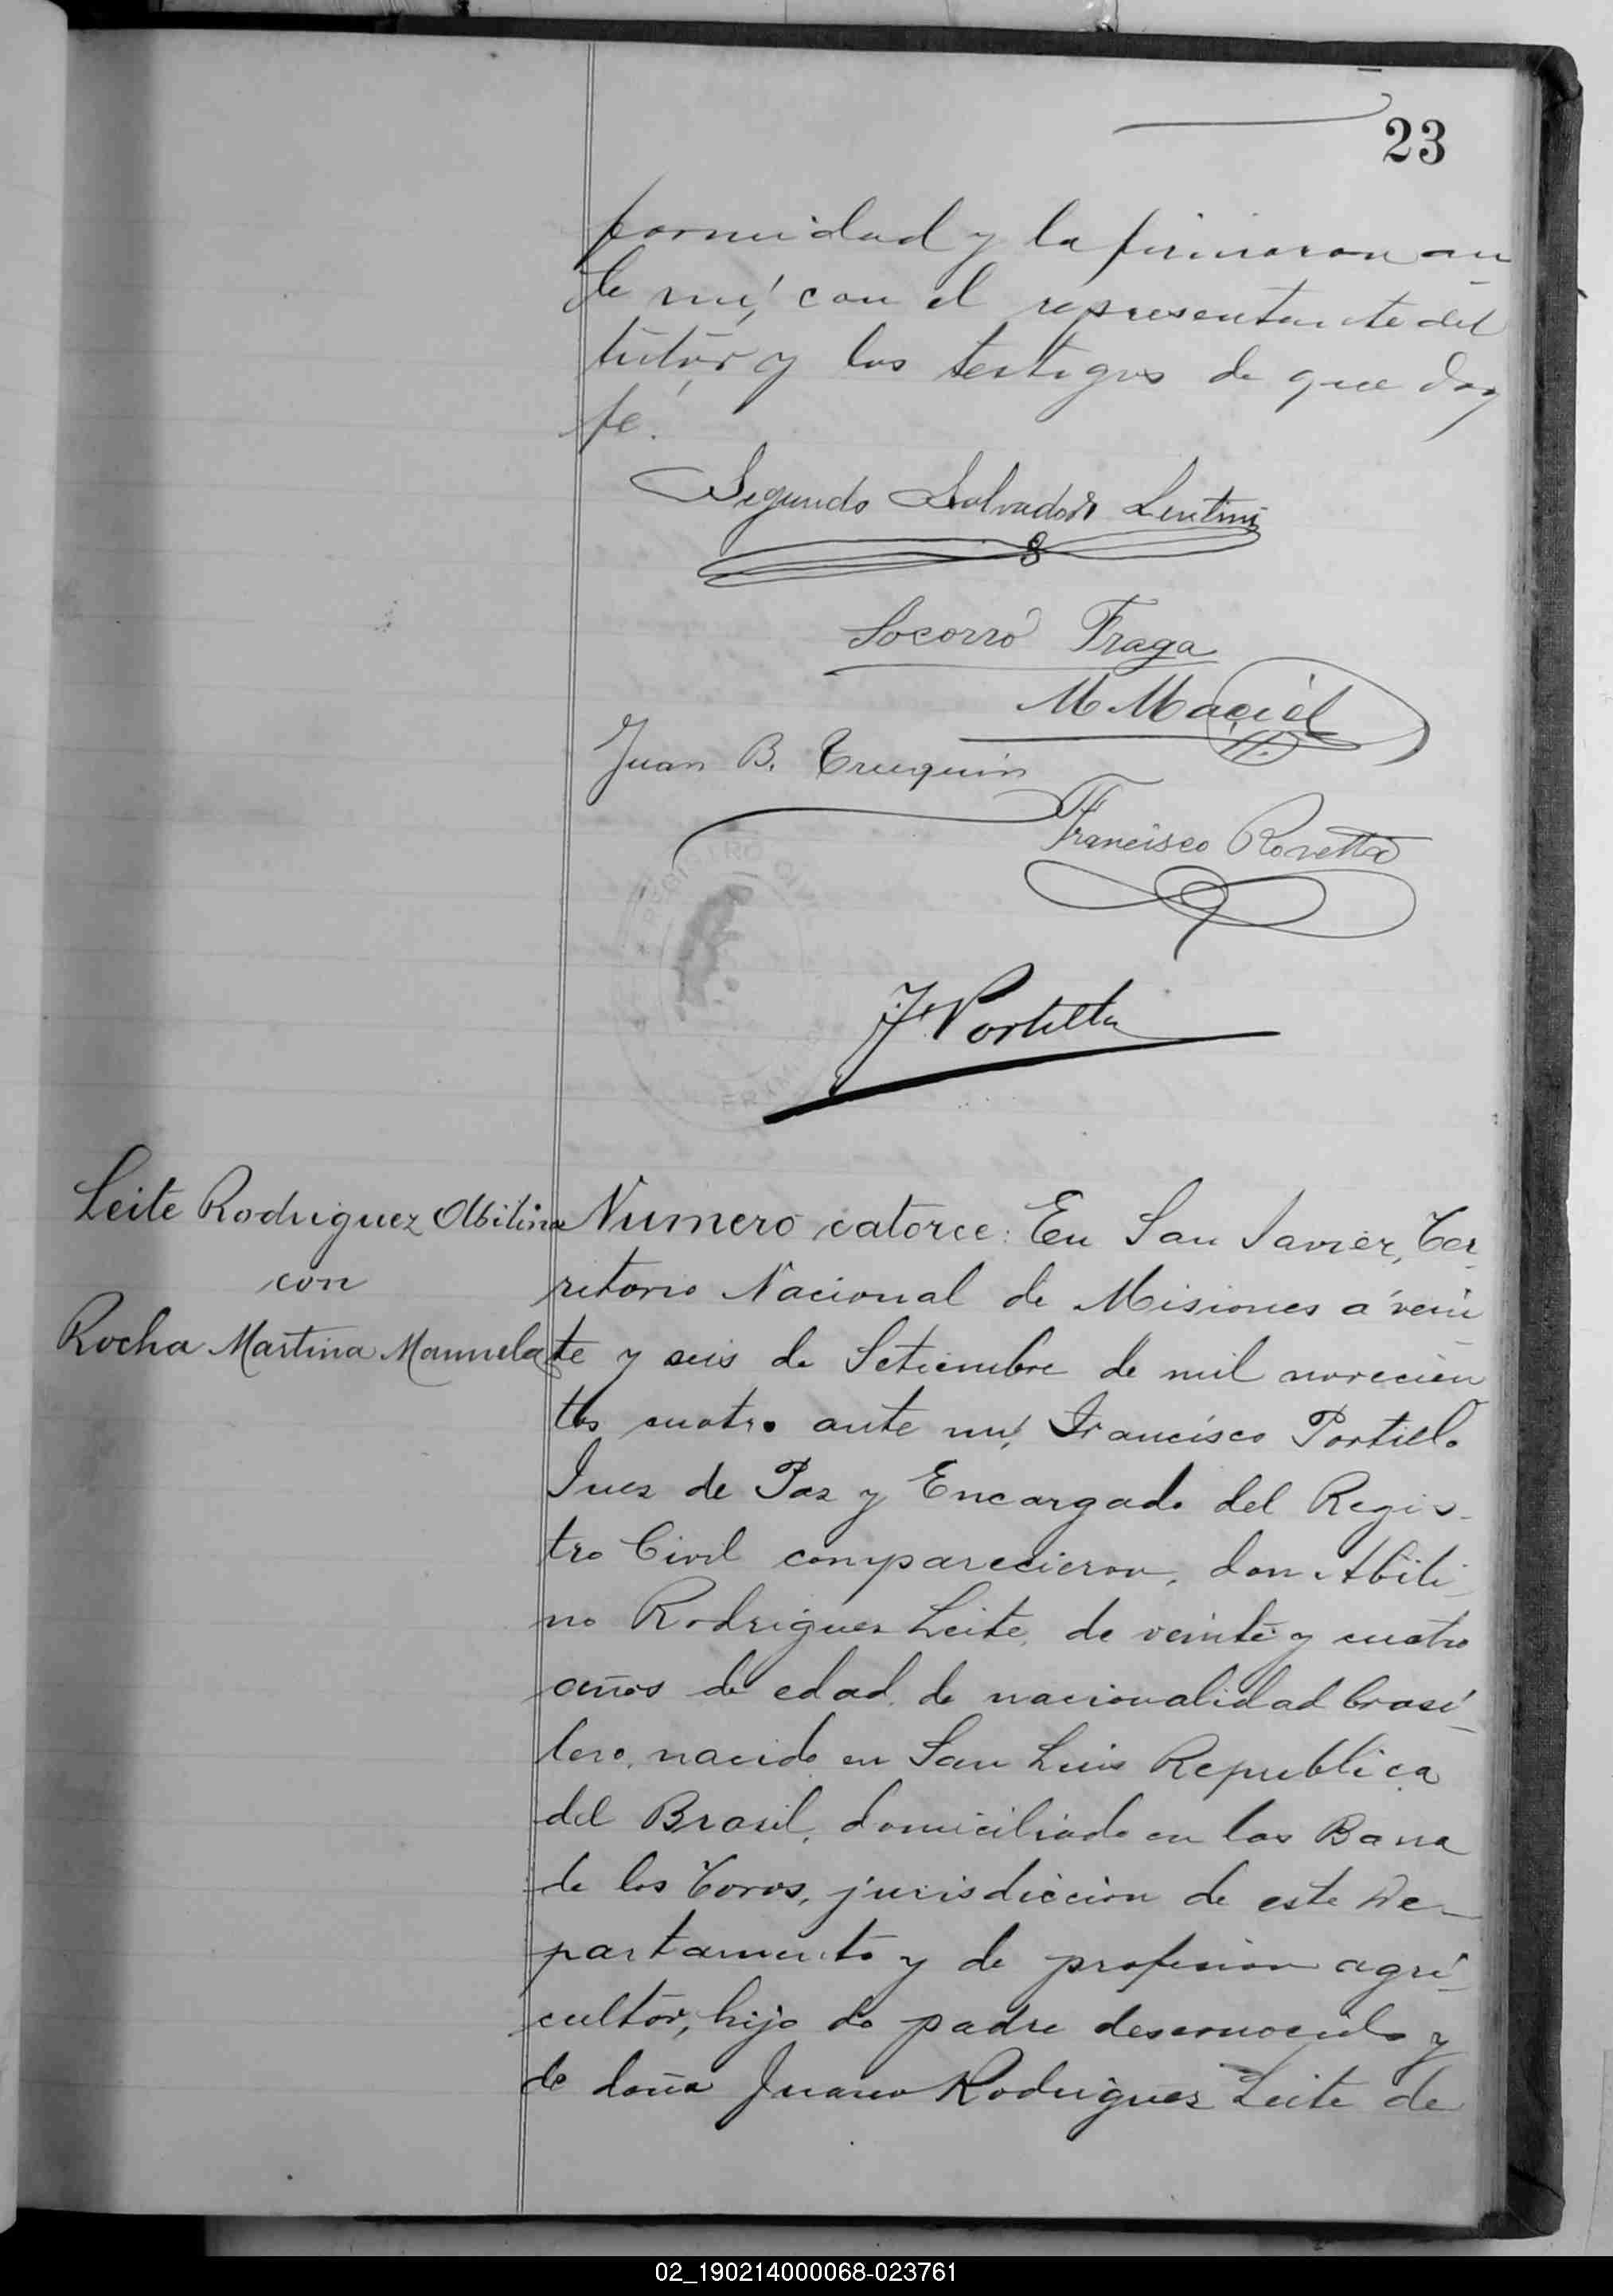 23
formidad y la firmaron an
te mí, con el representante del
tutor y los testigos de que doy
fé.
Segundo Salvador Lentini
Socorro Fraga
M Maciel
Juan B. Truquin
Francisco Rovetta
F Portillo
REGISTRO CIVIL
Leite Rodriguez Abilino
con
Rocha Martina Manuela
Numero catorce: En San Javier, Ter
ritorio Nacional de Misiones á vein
te y seis de Setiembre de mil novecien
tos cuatro ante mí, Francisco Portillo
Juez de Paz y Encargado del Regis-
tro Civil comparecieron, don Abili
no Rodriguez Leite, de veinte y cuatro
años de edad, de nacionalidad brasi-
lero, nacido en San Luis Republica
del Brasil, domiciliado en las Barra
de los Toros, jurisdiccion de este De-
partamento y de profesion agri-
cultor, hijo de padre desconocido y
de doña Juana Rodriguez Leite de
02_190214000068-023761